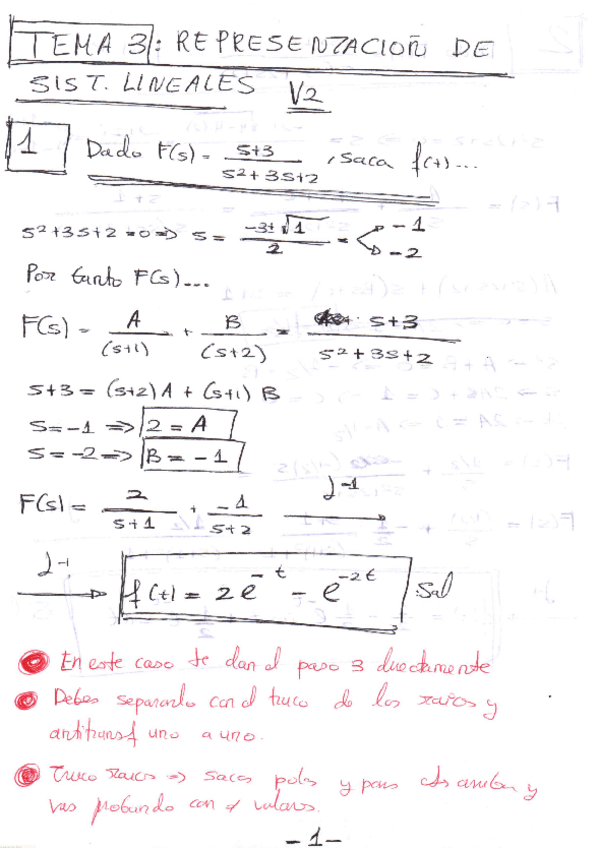 TEMA 3: REPRESENTACION DE
SIST. LINEALES V2
1 Dado F(s) = s+3 / s²+3s+2 , saca f(t)...
s²+3s+2=0 => s = -3±√1 / 2 = < -1 -2
Por tanto F(s)...
F(s) = A/(s+1) + B/(s+2) = s+3 / s²+3s+2
s+3 = (s+2)A + (s+1)B
s=-1 => 2 = A
s=-2 => B = -1
F(s) = 2/s+1 + -1/s+2 L⁻¹ →
L⁻¹ → f(t) = 2e^-t - e^-2t Sol
En este caso te dan el paso 3 directamente
Debes separarlo con el truco de las raíces y
antitransf uno a uno.
Truco raíces => sacas polos y pones cts arriba y
vas probando con valores.
-1-